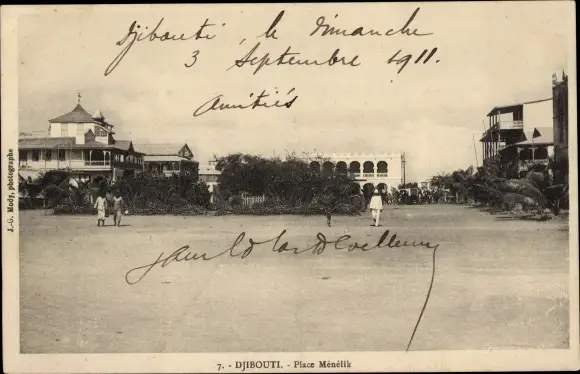 Djibouti, le Dimanche
3 Septembre 1911.
Amitiés
J.-G. Mody, photographe
7. - DJIBOUTI. - Place Ménélik